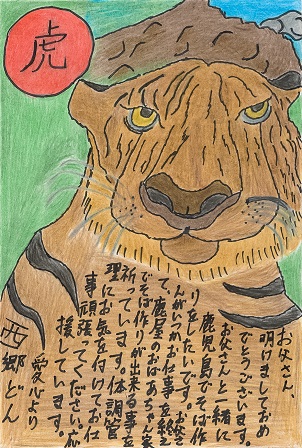 虎
お父さん、
明けましておめ
でとうございます。
お父さんと一緒に
鹿児島でそば作
りをしたいです。お父さ
んがいつかお仕事を終え
て、鹿屋のおばあちゃん家
でそば作りが出来る事を
祈っています。体調管
理にお気を付けてお仕
事頑張ってください。応
援しています。
愛心より
西郷どん